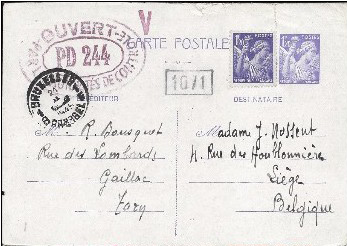 V
OUVERT
PD 244
CARTE POSTALE
POSTES
POSTES
10/1
BRUXELLES
BRUSSEL
EDITEUR
DESTINATAIRE
R. Bousquet
Madame J. Nossent
Rue des Lombards
4. Rue des Houblonnière
Gaillac
Liège
Tarn
Belgique